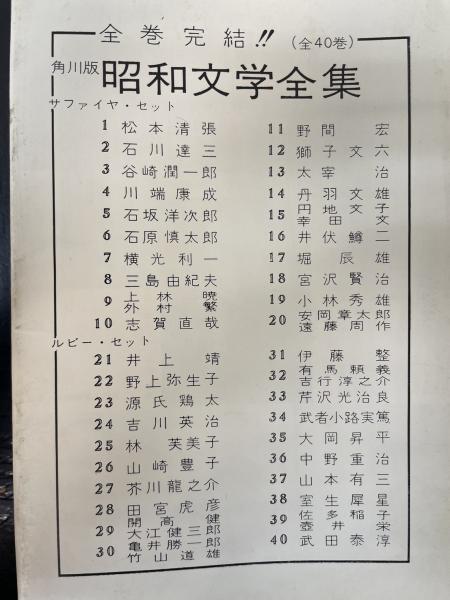 全巻完結!!(全40巻)
角川版 昭和文学全集
サファイヤ・セット
1 松本清張
2 石川達三
3 谷崎潤一郎
4 川端康成
5 石坂洋次郎
6 石原慎太郎
7 横光利一
8 三島由紀夫
9 上林暁
外村繁
10 志賀直哉
11 野間宏
12 獅子文六
13 太宰治
14 丹羽文雄
15 円地文子
幸田文
16 井伏鱒二
17 堀辰雄
18 宮沢賢治
19 小林秀雄
20 安岡章太郎
遠藤周作
ルビー・セット
21 井上靖
22 野上弥生子
23 源氏鶏太
24 吉川英治
25 林芙美子
26 山崎豊子
27 芥川龍之介
28 田宮虎彦
29 開高健
大江健三郎
30 亀井勝一郎
竹山道雄
31 伊藤整
32 有馬頼義
吉行淳之介
33 芹沢光治良
34 武者小路実篤
35 大岡昇平
36 中野重治
37 山本有三
38 室生犀星
39 佐多稲子
壺井栄
40 武田泰淳